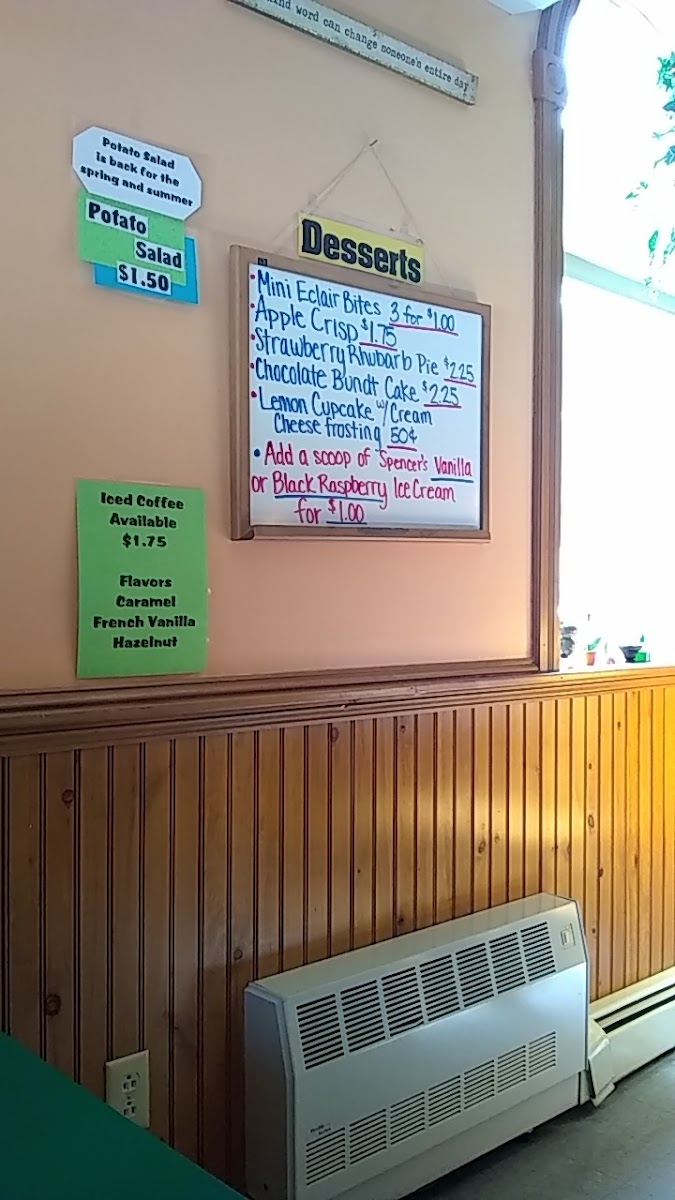 ind word can change someone's entire day
Potato Salad
is back for the
spring and summer
Potato
Salad
$1.50
Desserts
• Mini Eclair Bites 3 for $1.00
• Apple Crisp $1.75
• Strawberry Rhubarb Pie $2.25
• Chocolate Bundt Cake $2.25
• Lemon Cupcake w/ Cream
Cheese frosting 50¢
• Add a scoop of Spencer's Vanilla
or Black Raspberry Ice Cream
for $1.00
Iced Coffee
Available
$1.75
Flavors
Caramel
French Vanilla
Hazelnut